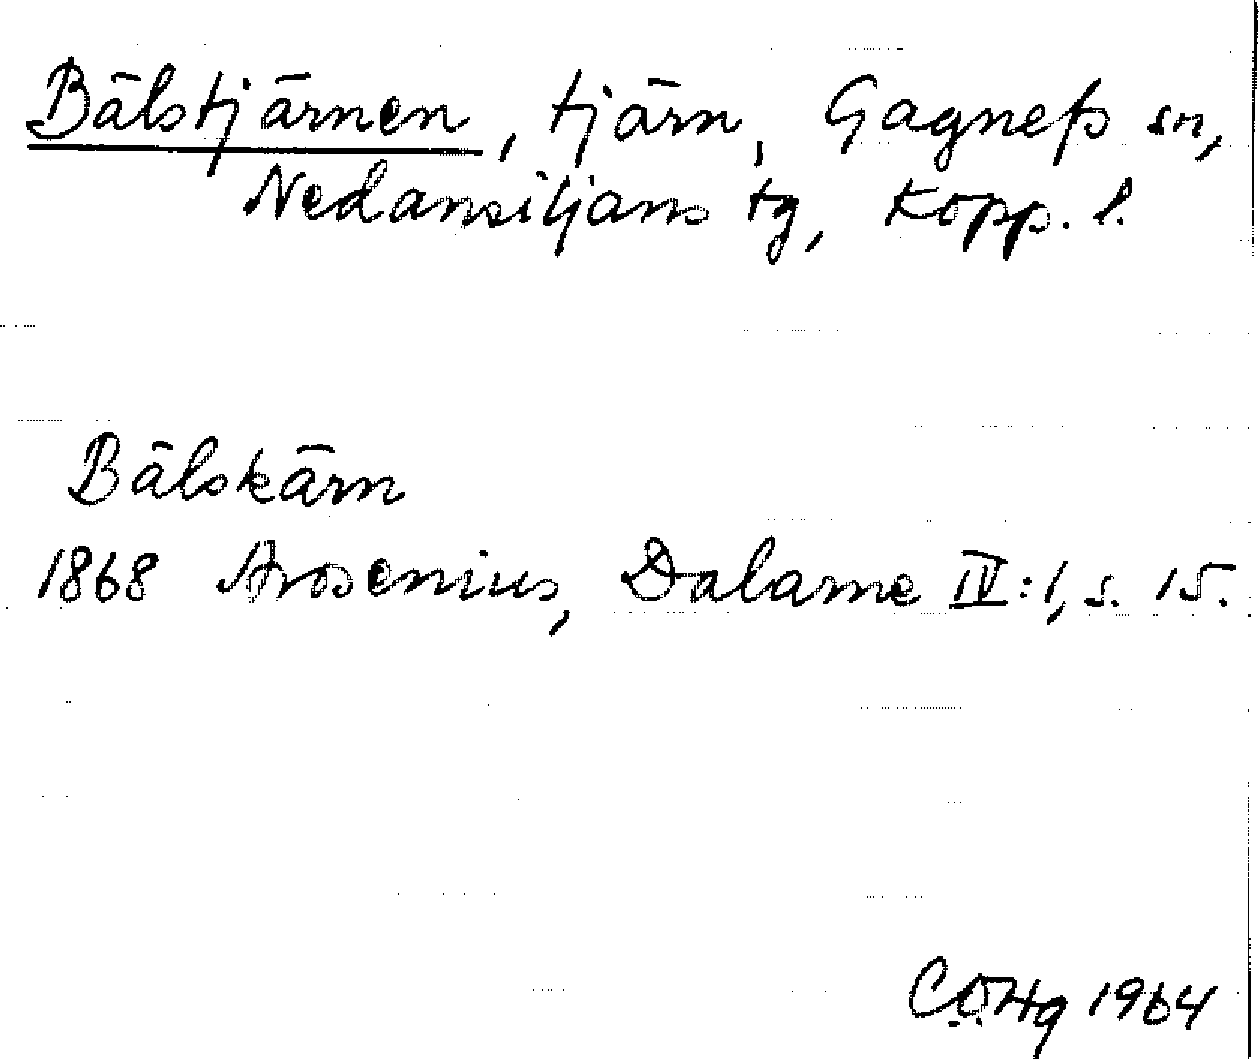 Bälstjärnen, tjärn, Gagnefs sn,
Nedansiljans tg, Kopp. l.
Bälskärn
1868 Arosenius, Dalarne IV:1, s. 15.
CÖHg 1964